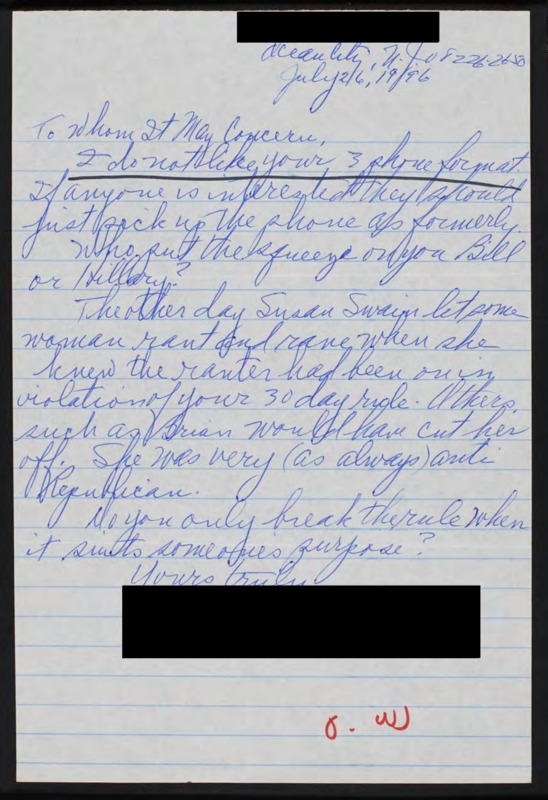 Ocean City, N.J. 08226-2650
July 26, 1996
To Whom It May Concern,
I do not like your 3 phone format.
If anyone is interested they should
just pick up the phone as formerly.
Who put the squeeze on you Bill
or Hillary?
The other day Susan Swain let some
woman rant and rave when she
knew the ranter had been on in
violation of your 30 day rule. Others,
such as Brian would have cut her
off. She was very (as always) anti
Republican.
Do you only break the rule when
it suits someones purpose?
Yours truly